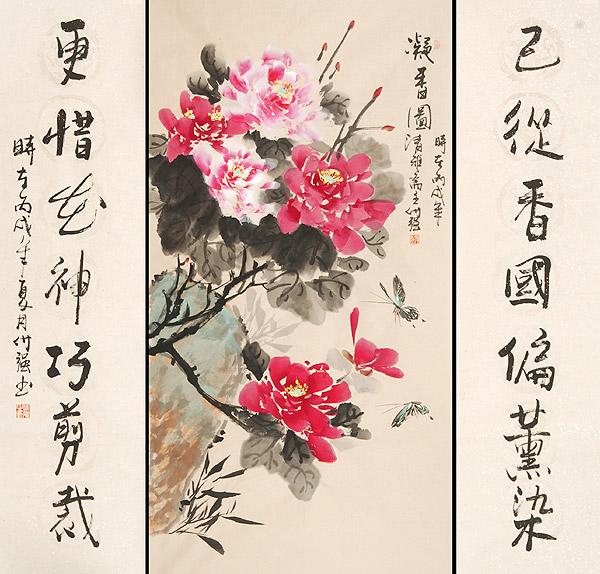 已從香國偏薰染
凝香圖
時在丙戌年
清雅齋主
更惜花神巧剪裁
時在丙戌年夏月